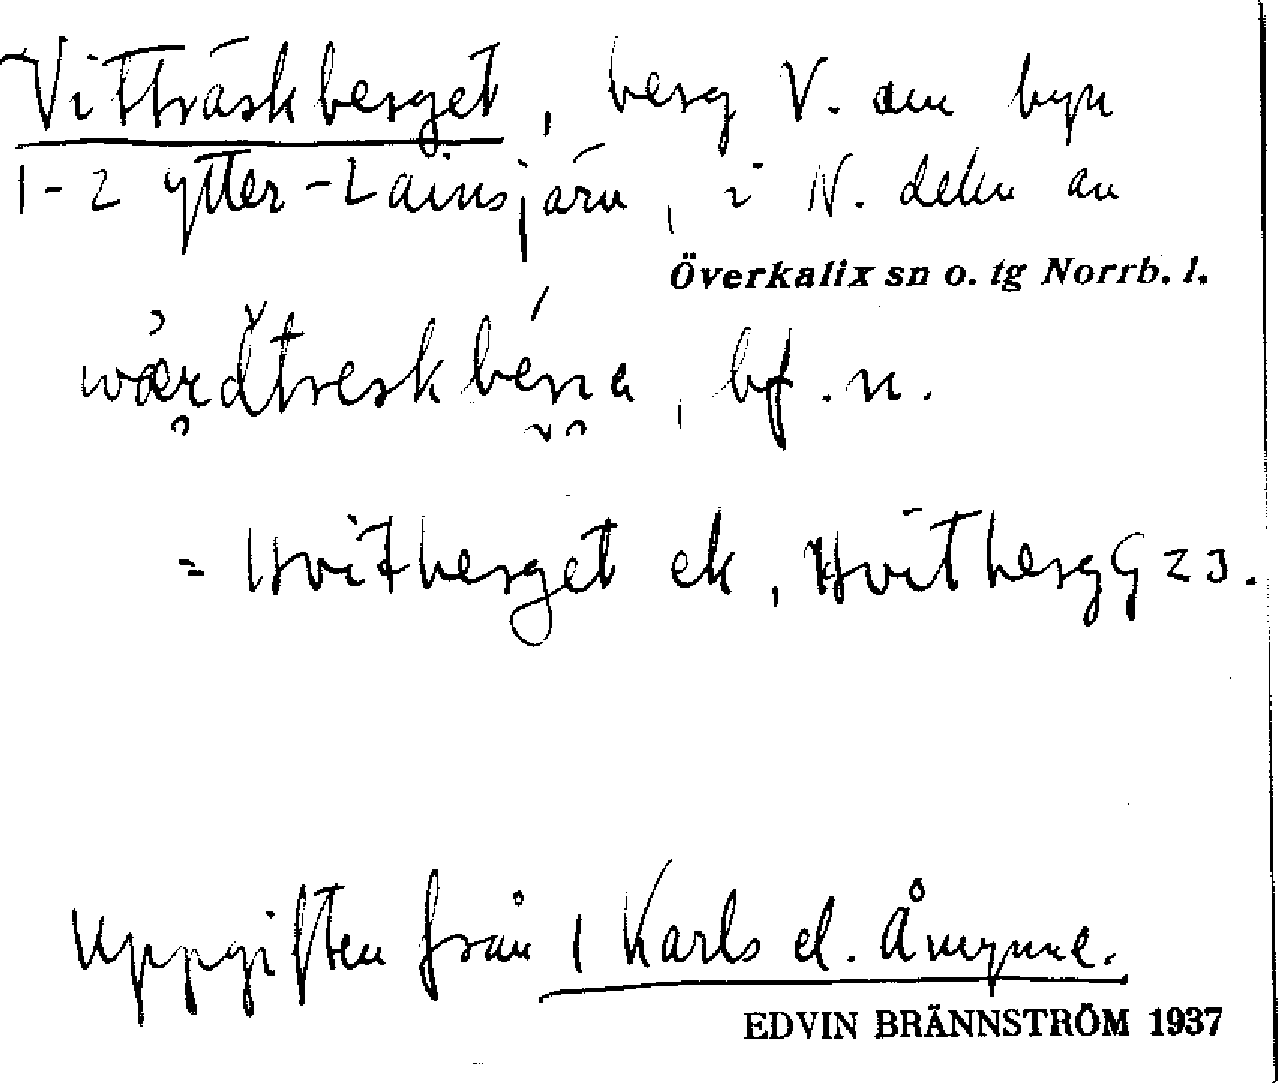 Vitträskberget, berg V. om byn
1-2 Ytter-Lainsjärv, i N. delen av
Överkalix sn o. tg Norrb. l.
bf. n.
= Hvitberget ek, Hvitberg G 23.
Uppgiften från 1 Karls el. Åmynne.
EDVIN BRÄNNSTRÖM 1937